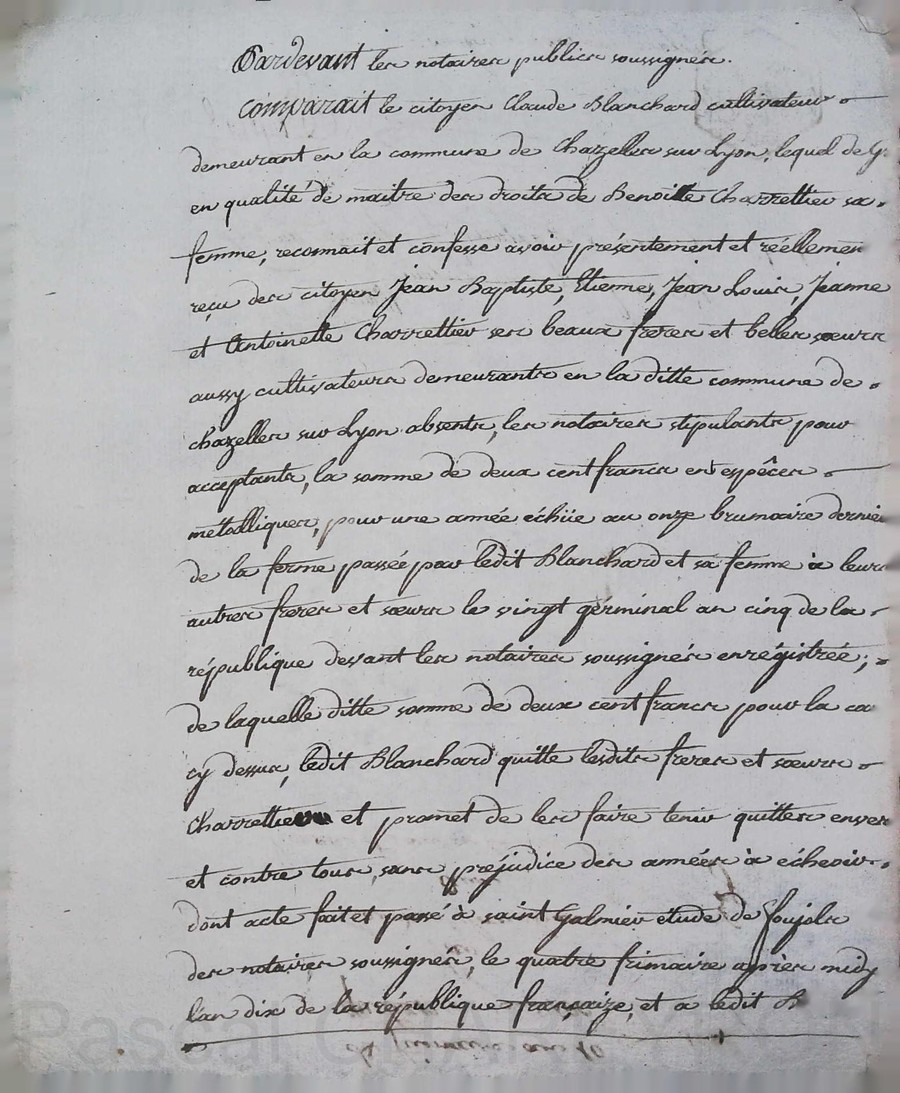 Pardevant les notaires publics soussignés.
comparait le citoyen Claude Blanchard cultivateur
demeurant en la commune de Chazelles sur Lyon, lequel de G
en qualité de maitre des droits de Benoitte Charrettier sa
femme, reconnait et confesse avoir présentement et réellemen
reçu des citoyen Jean Baptiste, Etienne, Jean Louis, Jeanne
et Antoinette Charrettier ses beaux freres et belles sœurs
aussy cultivateurs demeurants en la ditte commune de
chazelles sur Lyon absents, les notaires stipulants pour
acceptants, la somme de deux cent francs en espêces
métalliques, pour une année échüe au onze brumaire dernier
de la ferme passée par ledit Blanchard et sa femme à leurs
autres freres et sœurs le vingt gérminal an cinq de la
république devant les notaires soussignés enrégistrée;
de laquelle ditte somme de deux cent francs pour la ca
cy dessus, ledit Blanchard quitte lesdits freres et sœurs
Charrettier et promet de les faire tenir quittes envers
et contre tous, sans préjudice des années à écheoir.
dont acte fait et passé à saint Galmier étude de Poujols
des notaires soussignés, le quatre frimaire après midy
l'an dix de la république françaize, et a ledit B